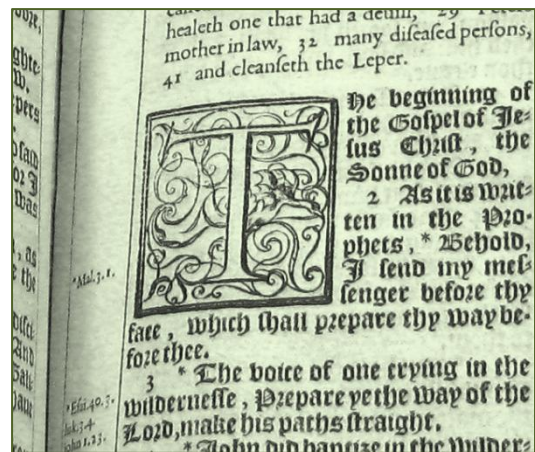 healeth one that had a deuill, 29 Peters
mother in law, 32 many diseased persons,
41 and cleanseth the Leper.
The beginning of
the Gospel of Je-
sus Christ, the
Sonne of God,
2 As it is writ-
ten in the Pro-
phets, * Behold,
I send my mes-
senger before thy
face, which shall prepare thy way be-
fore thee.
3 * The voice of one crying in the
wildernesse, Prepare ye the way of the
Lord, make his paths straight.
* John did baptize in the wilder-
* Mal. 3. 1.
* Esai. 40. 3.
luk. 3. 4.
iohn 1. 23.